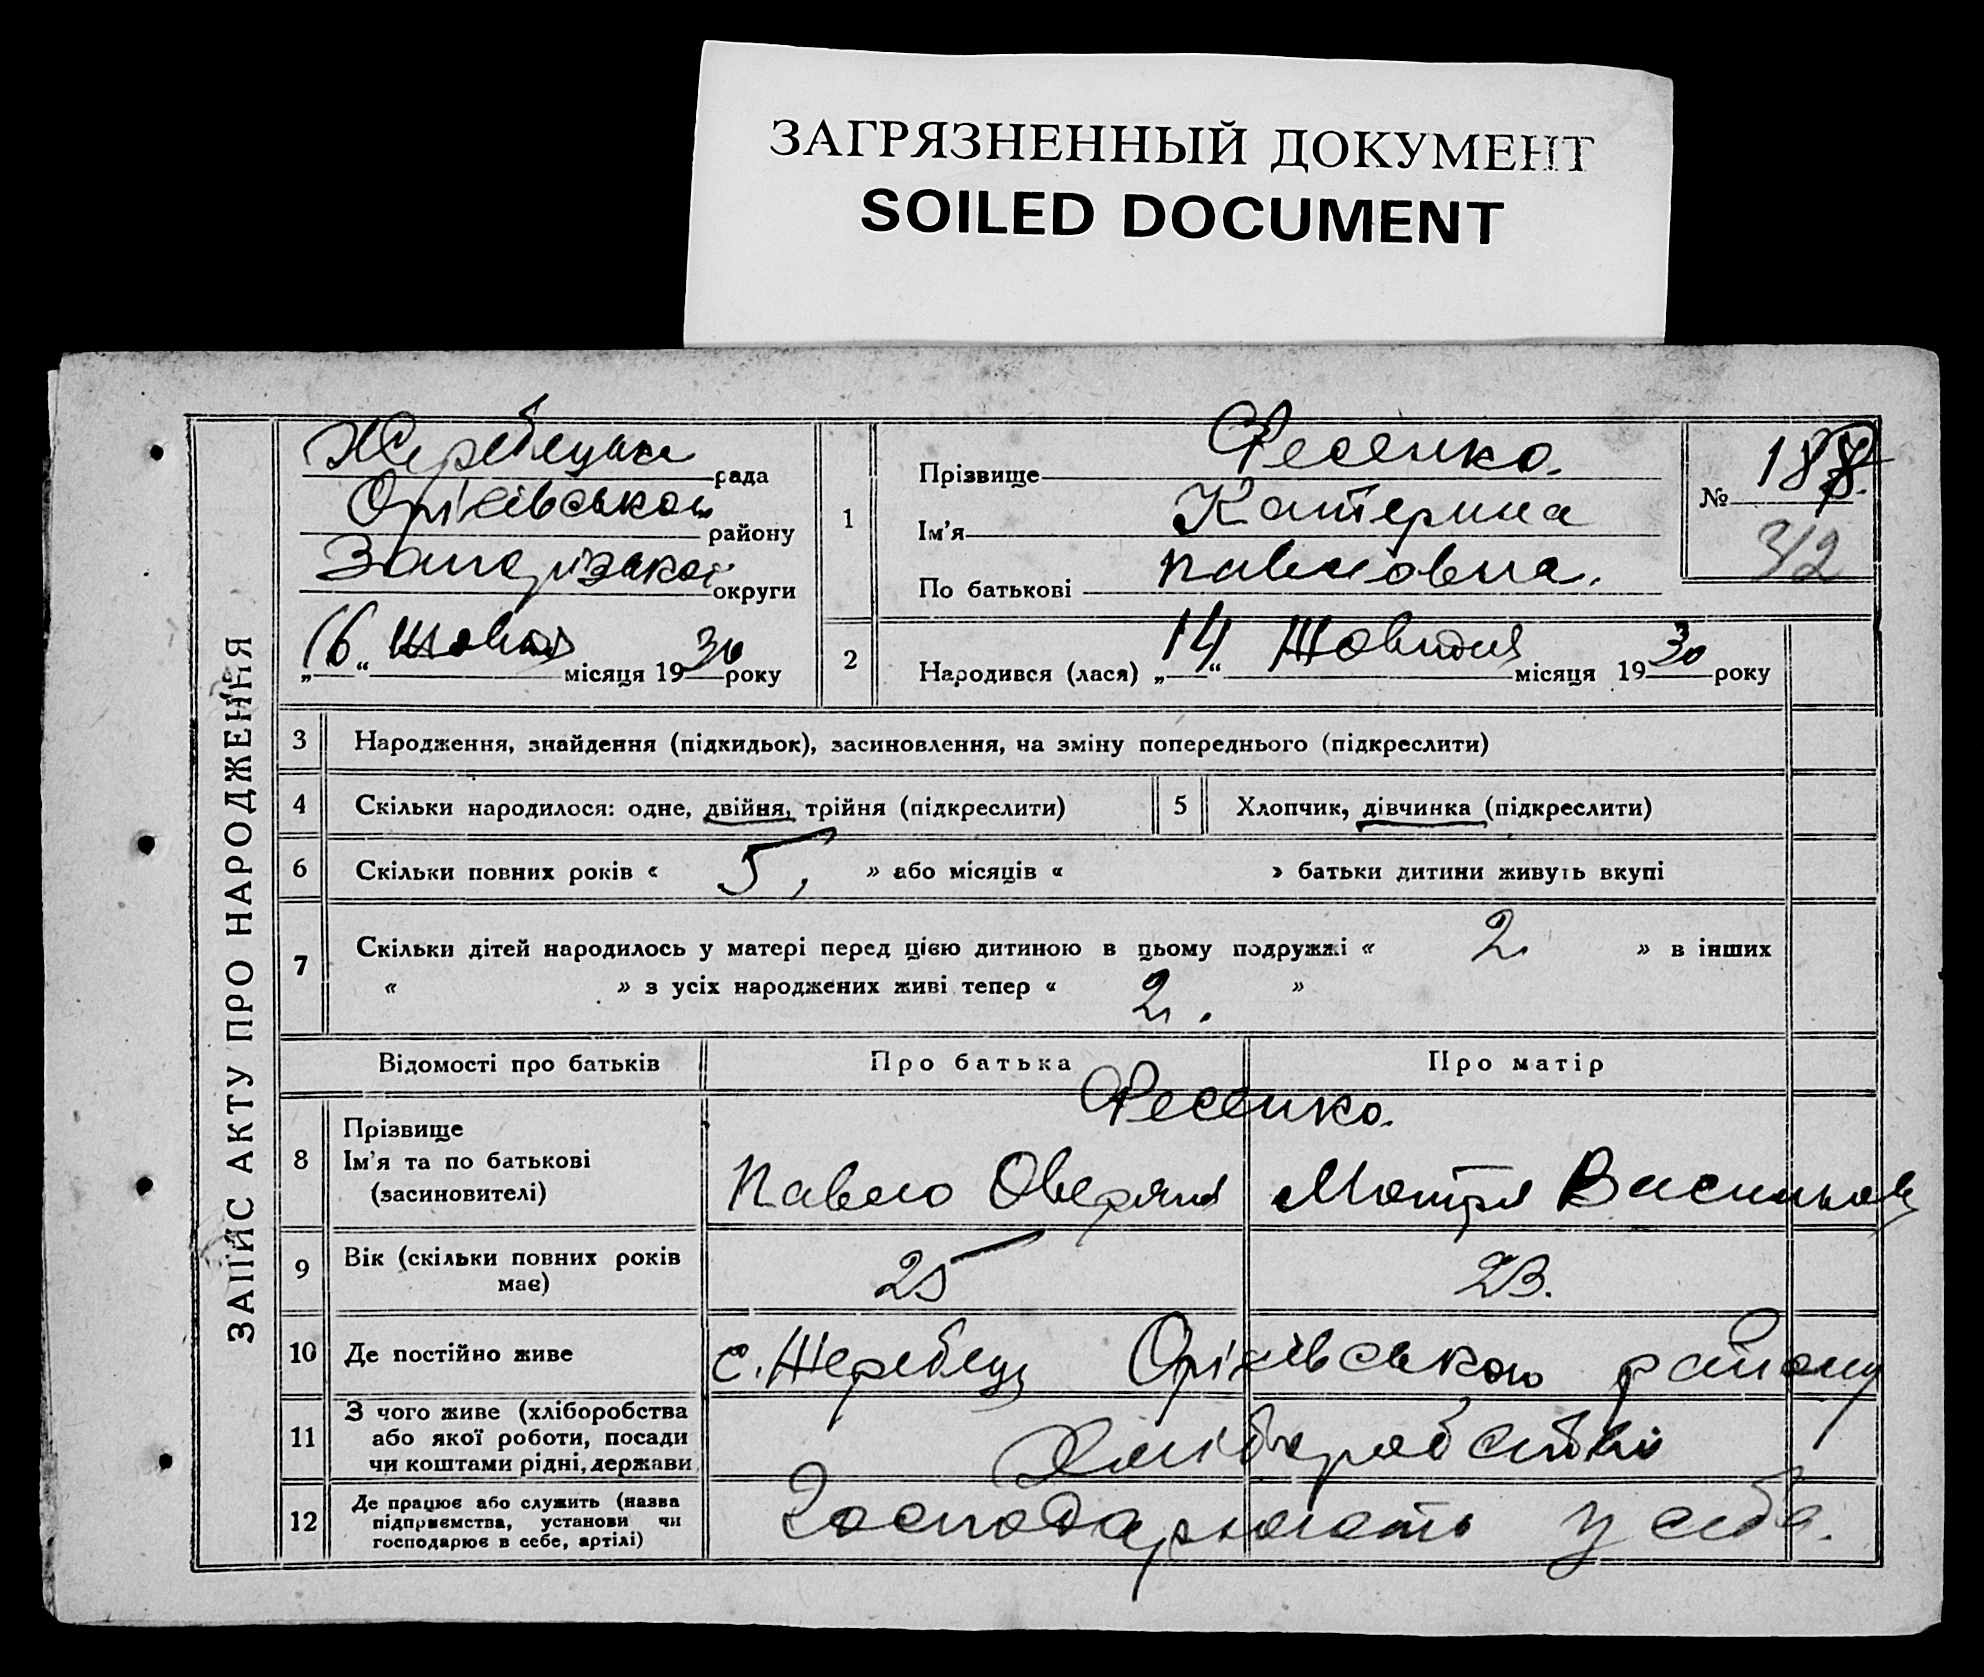 ЗАГРЯЗНЕННЫЙ ДОКУМЕНТ
SOILED DOCUMENT
ЗАПИС АКТУ ПРО НАРОДЖЕННЯ
Жеребецька рада
Оріхівського району
Запорізької округи
„16“ Жовтня місяця 1930 року
1
Прізвище Фесенко.
Ім'я Катерина
По батькові Павловна.
№ 188.
342
2
Народився (лася) „14“ Жовтня місяця 1930 року
3 Народження, знайдення (підкидьок), засиновлення, на зміну попереднього (підкреслити)
4 Скільки народилося: одне, двійня, трійня (підкреслити)
5 Хлопчик, дівчинка (підкреслити)
6 Скільки повних років « 5, » або місяців « » батьки дитини живуть вкупі
7 Скільки дітей народилось у матері перед цією дитиною в цьому подружжі « 2. » в інших
« » з усіх народжених живі тепер « 2. »
Відомості про батьків Про батька Про матір
8 Прізвище Фесенко.
Ім'я та по батькові Павло Оверян Мотря Васильов
(засиновителі)
9 Вік (скільки повних років 25 23.
має)
10 Де постійно живе с. Жеребець Оріхівського району
11 З чого живе (хліборобства
або якої роботи, посади
чи коштами рідні, держави
Хліборобство
12 Де працює або служить (назва
підприємства, установи чи
господарює в себе, артілі)
Господарюють у себе.